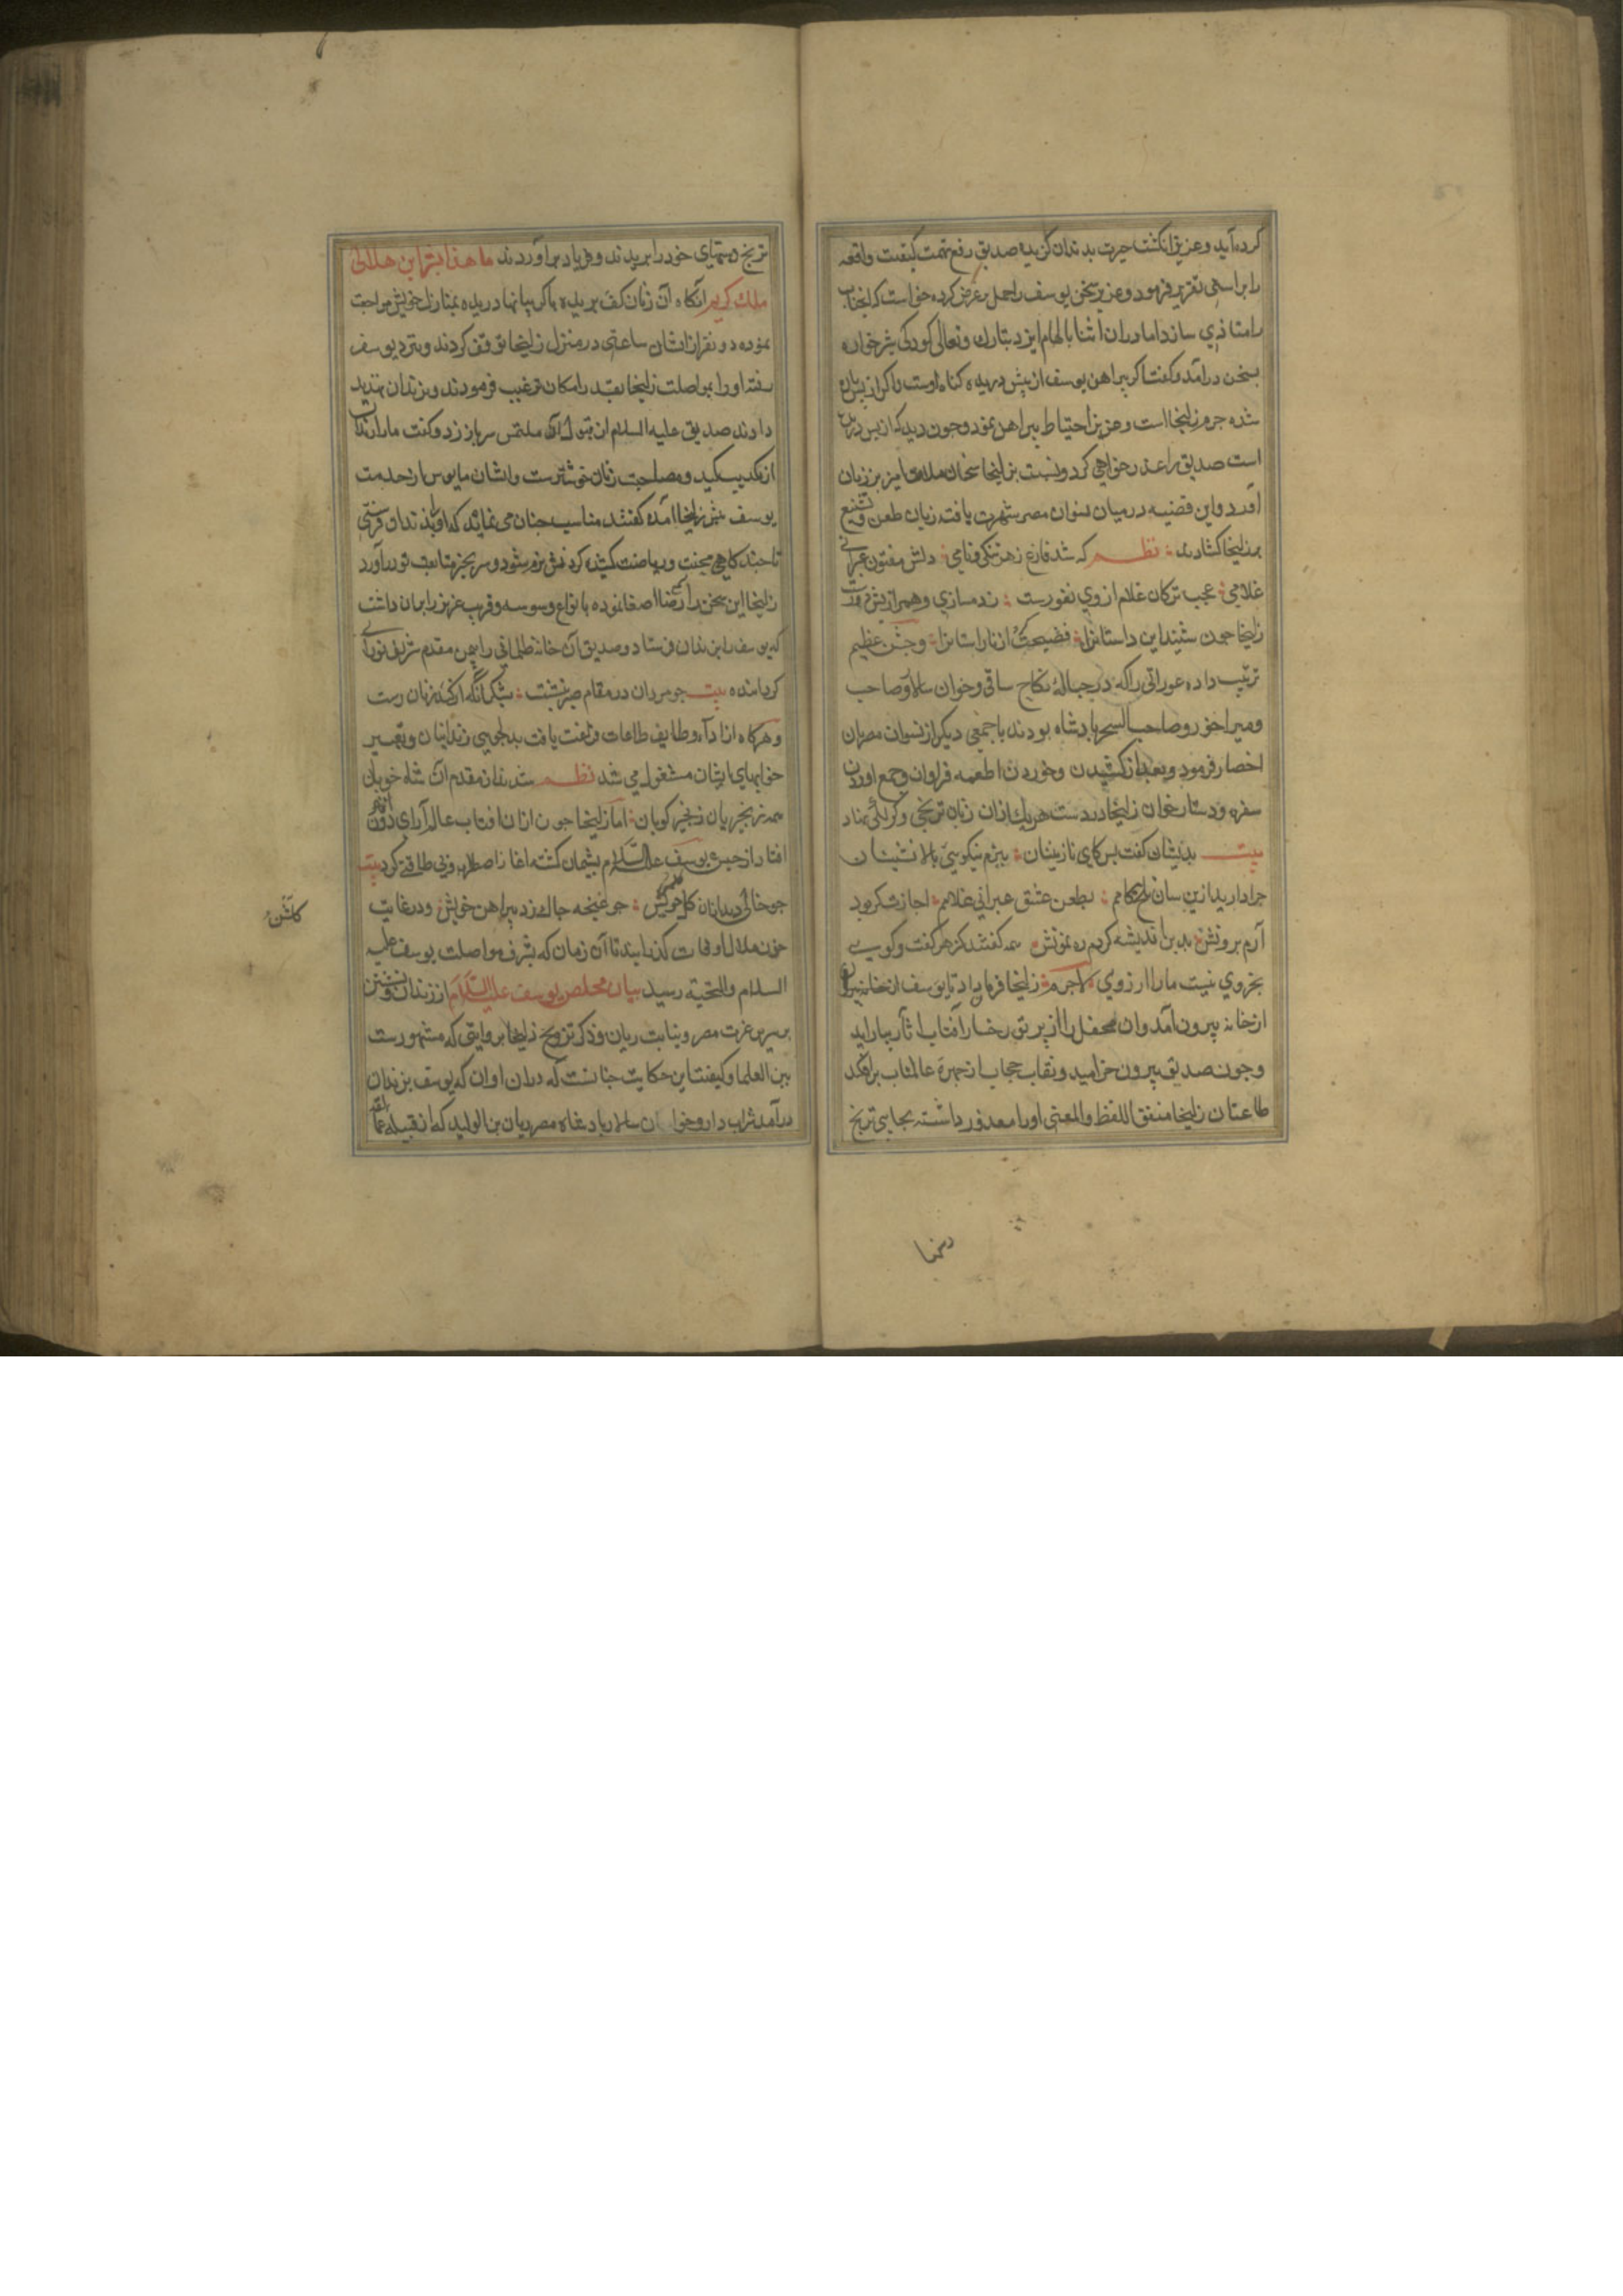 کرده آید و عزیز انکشت حیرت بدندان کزیده صدیق رفع تهمت کیفیت واقعه
را براستی تقریر فرمود و عزیز سخن یوسف را حمل بر غرض کرده خواست که انجناب
را متاذی سازد اما در ان اثنا بالهام ایزد تبارک و تعالی کودکی شیرخواره
بسخن درآمد و کفت اکر پیراهن یوسف از پیش دریده کناه اوست و اکر از پس پاره
شده جرم زلیخا است و عزیز احتیاط پیراهن نمود و چون دید که از پس دریده
است صدیق را عذرخواهی کرد و نسبت بزلیخا سخنان ملامت امیز بر زبان
آورد و این قضیه در میان نسوان مصر شهرت یافته زبان طعن و تشنیع
بر زلیخا کشادند نظم که شد فارغ ز هر ننکی و نامی دلش مفتون عبرانی
غلامی عجب ترکان غلام از وی نفورست ز دمسازی و همرازیش دورست
زلیخا چون شنید این داستانرا فضیحت ان ناراستانرا و جشن عظیم
ترتیب داده عوراتی را که در حبالهٔ نکاح ساقی و خوان سالار و صاحب
و میراخور و صاحب السحر پادشاه بودند با جمعی دیکر از نسوان مصریان
احضار فرمود و بعد از کشیدن و خوردن اطعمه فراوان و جمع اوردن
سفره و دستارخوان زلیخا در دست هریک از ان زنان ترنجی و کزلکی نهاد
بیت بدیشان کفت پس کای نازنینان ببزم نیکویی بالا نشینان
چرا دارید ازین سان تلخ کامم بطعن عشق عبرانی غلامم اجازت کر بود
آرم برونش بدین اندیشه کردم رهنمونش همه کفتند کز هر کفت و کویی
بجز وی نیست ما را ارزویی لاجرم زلیخا فرمان داد تا یوسف از خانه بیرون
از خانه بیرون آمد و ان محفل را از پرتو رخسار آفتاب اثار بیاراید
و چون صدیق بیرون خرامید و نقاب حجاب از چهرهٔ عالمتاب برافکند
طاعنان زلیخا متفق اللفظ والمعنی او را معذور داشته بجای ترنج
رهنما
ترنج دستهای خود را بریدند و فریاد براوردند ما هذا بشرا ان هذا الا
ملک کریم آنکاه آن زنان کف بریده با کریبانها دریده بمنازل خویش مراجعت
نموده دو نفر از ایشان ساعتی در منزل زلیخا توقف کردند و نزد یوسف
رفته او را بمواصلت زلیخا بقدر امکان ترغیب فرمودند و بزندان تهدید
دادند صدیق علیه السلام از قبول آن ملتمس سر باز زد و کفت ما را زندان
از مکیدت و مصاحبت زنان خوشترست و ایشان مایوس از خدمت
یوسف پیش زلیخا آمده کفتند مناسب چنان می نماید که او را بزندان فرستی
تا چند کاهی محنت و ریاضت کشیده کردنش نرم شود و سر بچنبر متابعت تو دراورد
زلیخا این سخن را بسمع رضا اصغا نموده بانواع وسوسه و فریب عزیز را بران داشت
که یوسف را بزندان فرستاد و صدیق آن خانه ظلمانی را بیمن مقدم شریف نورانی
کردانیده بیت چو مردان در مقام صبر بنشست بشکر آنکه از کید زنان رست
و هرکاه از ادآء وظایف طاعات فراغت یافت بدلجویی زندانیان و تعبیر
خوابهای ایشان مشغول می شد نظم شدند از مقدم آن شاه خوبان
همه زنجیریان زنجیر کوبان اما زلیخا چون از ان افتاب عالم آرای دور
افتاد از حبس یوسف علیه السلام پشیمان کشته اغاز اضطراب و بی طاقتی کرد بیت
چو خالی دید از ان کل کلشن خویش چو غنچه چاک زد پیراهن خویش و در غایت
حزن و ملال اوقات کذرانید تا آن زمان که بشرف مواصلت یوسف علیه
السلام والتحیه رسید بیان مخلص یوسف علیه السلام از زندان و نشستن
بر سریر عزت مصر و نیابت ریان و ذکر تزویج زلیخا بروایتی که مشهورست
بین العلما و کیفیت این حکایت چنانست که در ان اوان که یوسف بزندان
درآمد شراب دار و خوان سالار پادشاه مصر ریان بن الولید که از قبیله عمالقه
کلشن